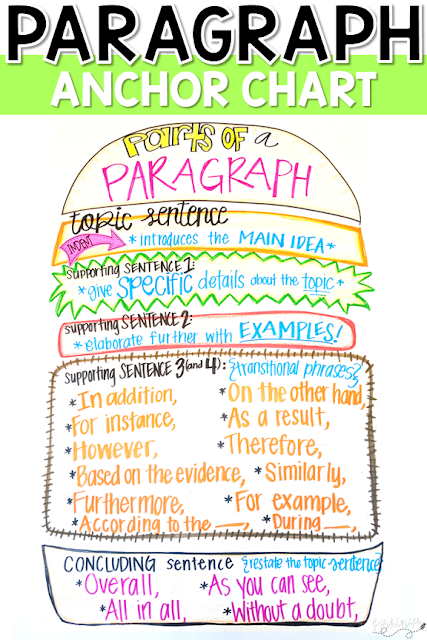 PARAGRAPH
ANCHOR CHART
parts OF a
PARAGRAPH
topic sentence
INDENT
*introduces the MAIN IDEA*
supporting SENTENCE 1:
*give SPECIFIC details about the topic*
supporting SENTENCE 2:
*elaborate further with EXAMPLES!
supporting SENTENCE 3 (and 4): {transitional phrases}
*In addition, *On the other hand,
*For instance, *As a result,
*However, *Therefore,
*Based on the evidence, *Similarly,
*Furthermore, *For example,
*According to the ___, *During ___,
CONCLUDING sentence {restate the topic sentence}
*Overall, *As you can see,
*All in all, *Without a doubt,